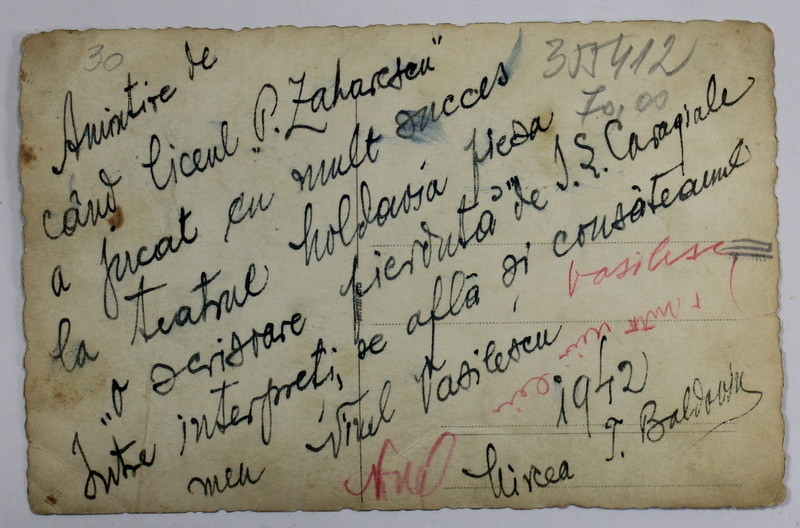 30
355412
70,00
Amintire de
când liceul "P. Zaharescu"
a jucat cu mult succes
la teatrul Moldavia piesa
"O scrisoare pierdută" de I. L. Caragiale
Între interpreți, se află și consăteanul
meu Ninel Vasilescu
Vasilescu
1942
Mircea T. Baldovin